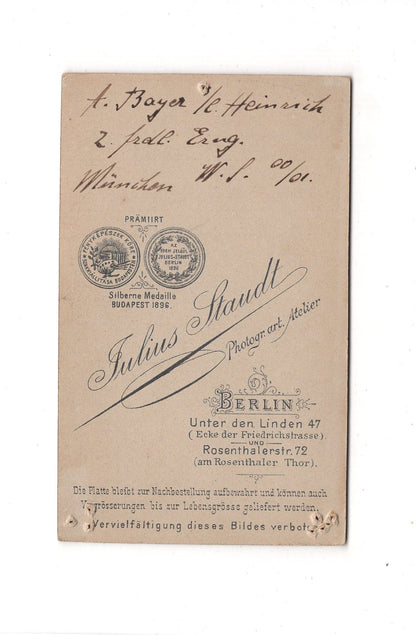 A. Bayer s/l. Heinrich
z. frdl. Erng.
München W. S. 00/01.
PRÄMIIRT
FÉNYKÉPÉSZEK KÖRE
KIÁLLÍTÁSA BUDAPESTEN
AZ
ÉREM JELÖLI
JULIUS STAUDT
BERLIN
1896
Silberne Medaille
BUDAPEST 1896.
Julius Staudt
Photogr. art. Atelier
BERLIN
Unter den Linden 47
(Ecke der Friedrichstrasse)
UND
Rosenthalerstr. 72
(am Rosenthaler Thor).
Die Platte bleibt zur Nachbestellung aufbewahrt und können auch
Vergrösserungen bis zur Lebensgrösse geliefert werden.
Vervielfältigung dieses Bildes verboten